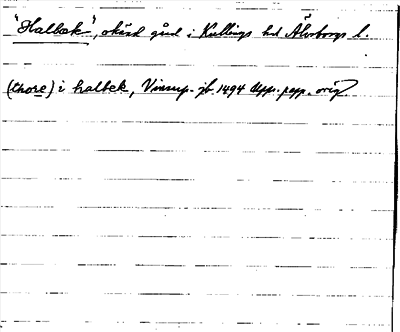 "Halbæk", okänd gård i Kullings hd Älvsborgs l.
(Thore) i halbek, Vinsarp-jb 1494 Upps. papp. orig.